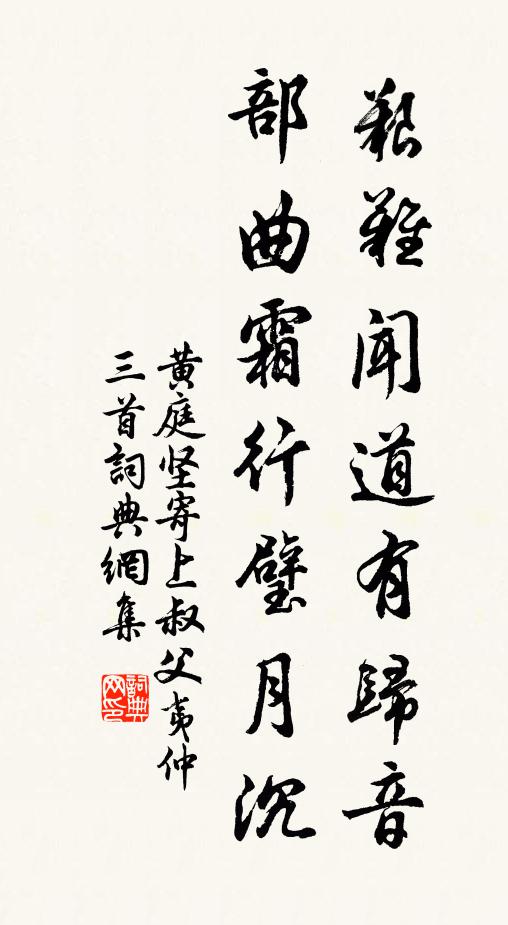 艱難聞道有歸音
部曲霜行璧月沉
黄庭坚寄上叔父夷仲
三首詞典網集
詞典
网印